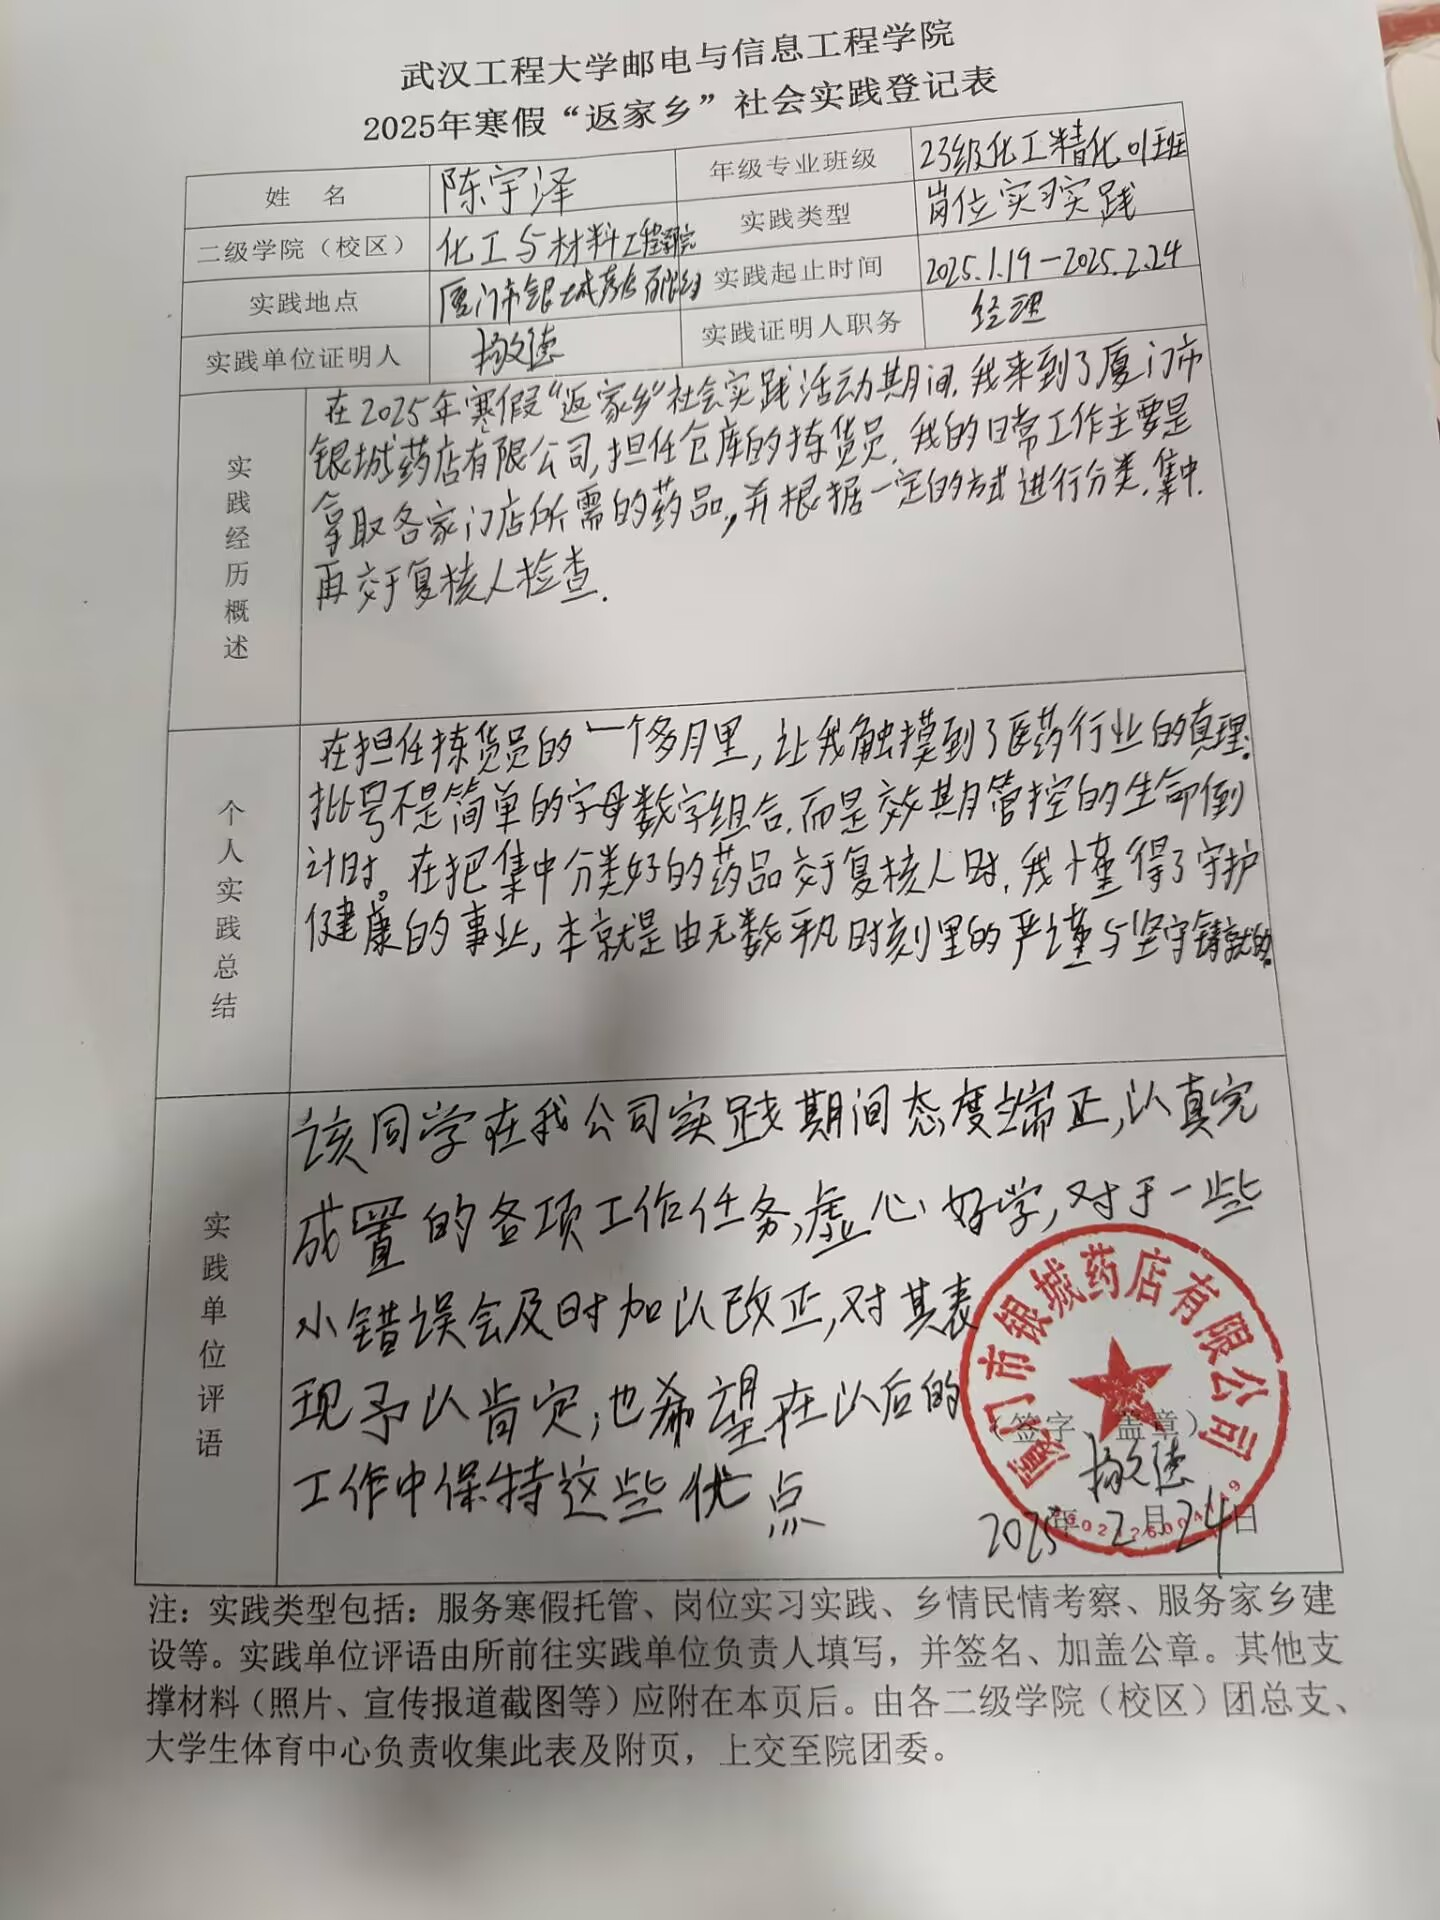 武汉工程大学邮电与信息工程学院
2025年寒假“返家乡”社会实践登记表
姓 名 陈宇泽 年级专业班级 23级化工精化01班
二级学院（校区） 化工与材料工程学院 实践类型 岗位实习实践
实践地点 厦门市银城药店有限公司 实践起止时间 2025.1.19-2025.2.24
实践单位证明人 实践证明人职务 经理
实践经历概述
在2025年寒假“返家乡”社会实践活动期间,我来到了厦门市
银城药店有限公司,担任仓库的拣货员,我的日常工作主要是
拿取各家门店所需的药品,并根据一定的方式进行分类,集中.
再交于复核人检查.
个人实践总结
在担任拣货员的一个多月里,让我触摸到了医药行业的真理:
批号不是简单的字母数字组合,而是效期管控的生命倒
计时。在把集中分类好的药品交于复核人时,我懂得了守护
健康的事业,本就是由无数平凡时刻里的严谨与坚守铸就的.
实践单位评语
该同学在我公司实践期间态度端正,认真完
成置的各项工作任务,虚心好学,对于一些
小错误会及时加以改正,对其表
现予以肯定,也希望在以后的
工作中保持这些优点
（签字 盖章）
2025年2月24日
厦门市银城药店有限公司
注：实践类型包括：服务寒假托管、岗位实习实践、乡情民情考察、服务家乡建
设等。实践单位评语由所前往实践单位负责人填写，并签名、加盖公章。其他支
撑材料（照片、宣传报道截图等）应附在本页后。由各二级学院（校区）团总支、
大学生体育中心负责收集此表及附页，上交至院团委。